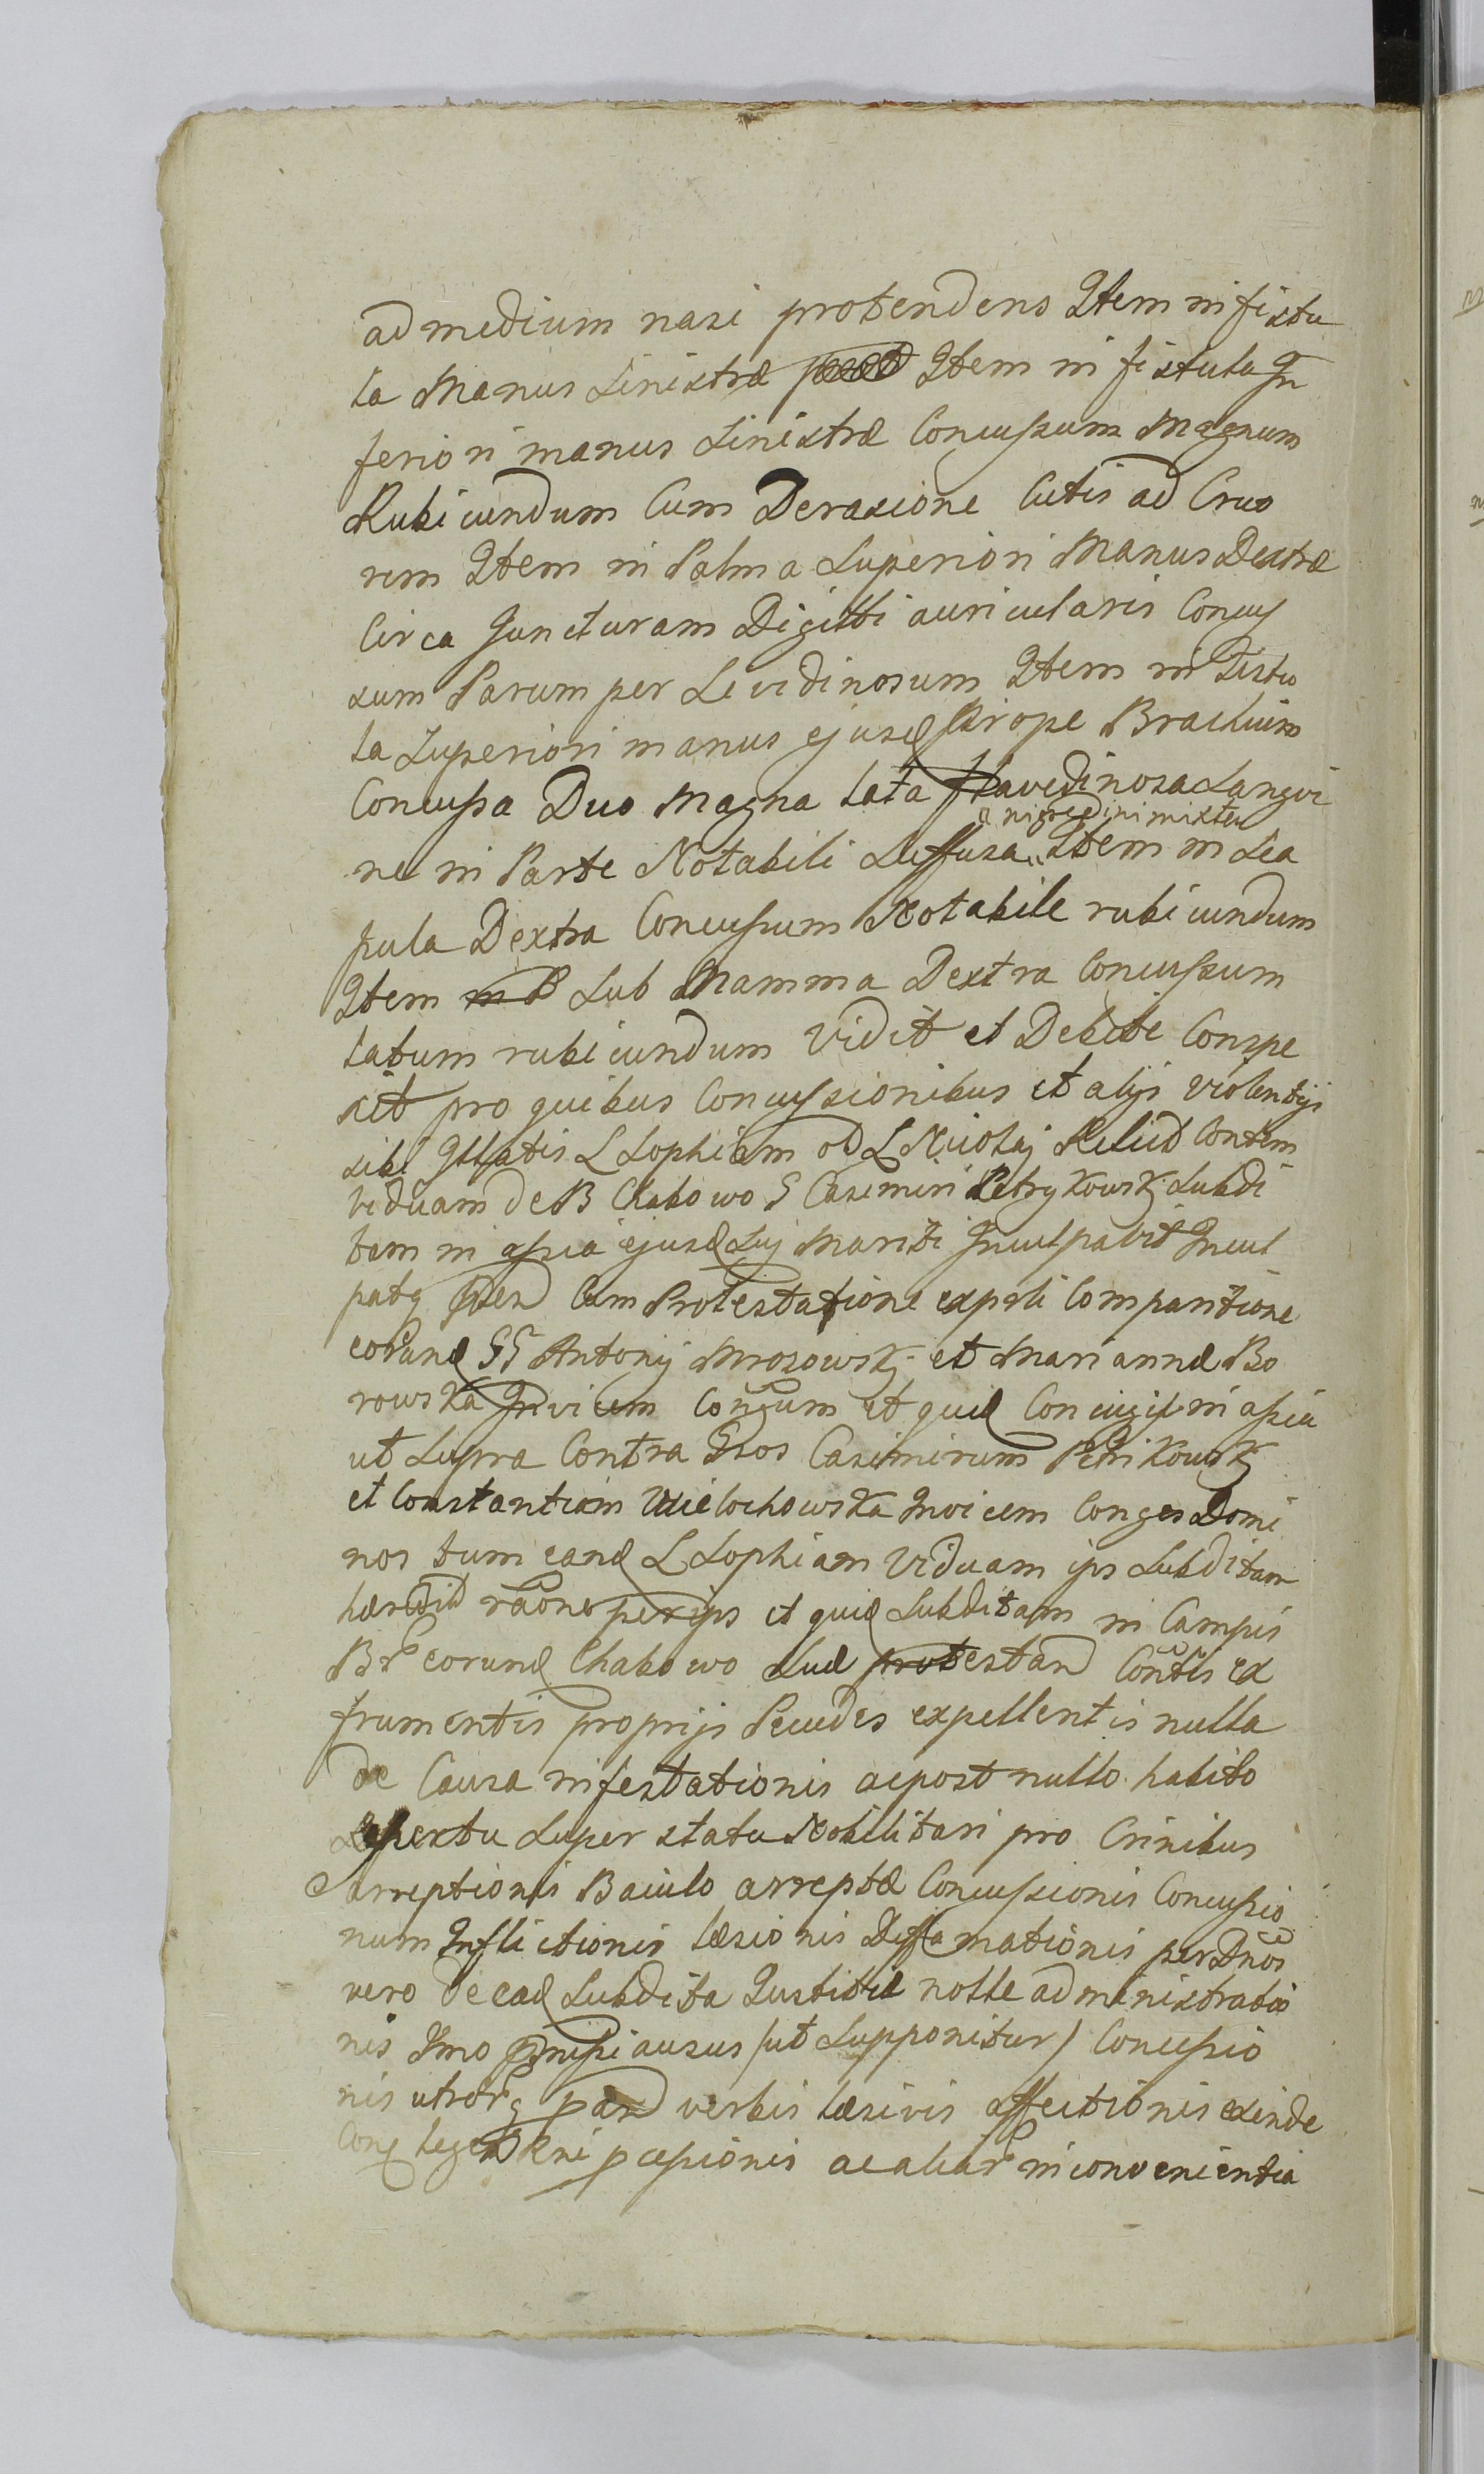 ad medium nasi protendens Item in fistu
la Manus Sinistræ Item in fistula In
feriori manus Sinistræ Concussum Magnum
Rubicundum Cum Derasione Cutis ad Cruo
rem Item in Palma Superiori Manus Dextræ
Circa Juncturam Digitti auricularis Concus
sum Parumper Levidinosum Item in Fistu
la Superiori manus ejusd prope Brachium
Concussa Duo Magna lata flavedinosa Sangvi
nigredini mixta
ne in Parte Notabili Suffusa Item in Sca
pula Dextra Concussum Notabile rubicundum
Item in P Sub Mamma Dextra Concussum
latum rubicundum Vidit et Debite Conspe
xit pro quibus Concussionibus et alijs violentijs
sibi Illatis L Sophiam od L Relict
viduam de B Chabowo G Casimiri Petrykowskj Subdi
tam in assia ejusd Suj Mariti Inculpavit Incul
patq Cum Protestatione expsti Comparitione
eorund GG Antonij Mrozowskj et Mariannæ Bo
rowska Invicem Conjum et quid Conjugis in assia
ut Supra Contra Gsos Casimirum Petrikowskj
et Constantiam Wielochowska Invicem Conges Domi
nos tum eand L Sophiam Viduam ips Subditam
raone per ips et quid Subditam in Campis
Br eorund Chabowo Suæ protestan Contis ex
frumentis proprijs Pecudes expellentis nulla
de Causa infestationis ac post nullo habito
Respectu Super statu Nobilitari pro Crinibus
arreptionis Baculo arreptæ Concussionis Concussio
num Inflictionis læsionis Deffamationis per Dnos
vero de ead Subdita Justitiæ nolle administratio
nis Imo ausus (ut Supponitur) Concussio
nis verbis læsivis affectionis exinde
pcessionis ac aliar inconvenientia